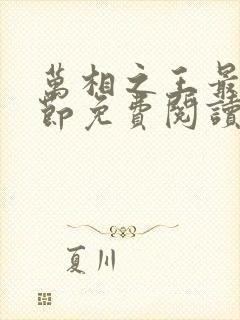 萬相之王最
節免費閱讀
夏川